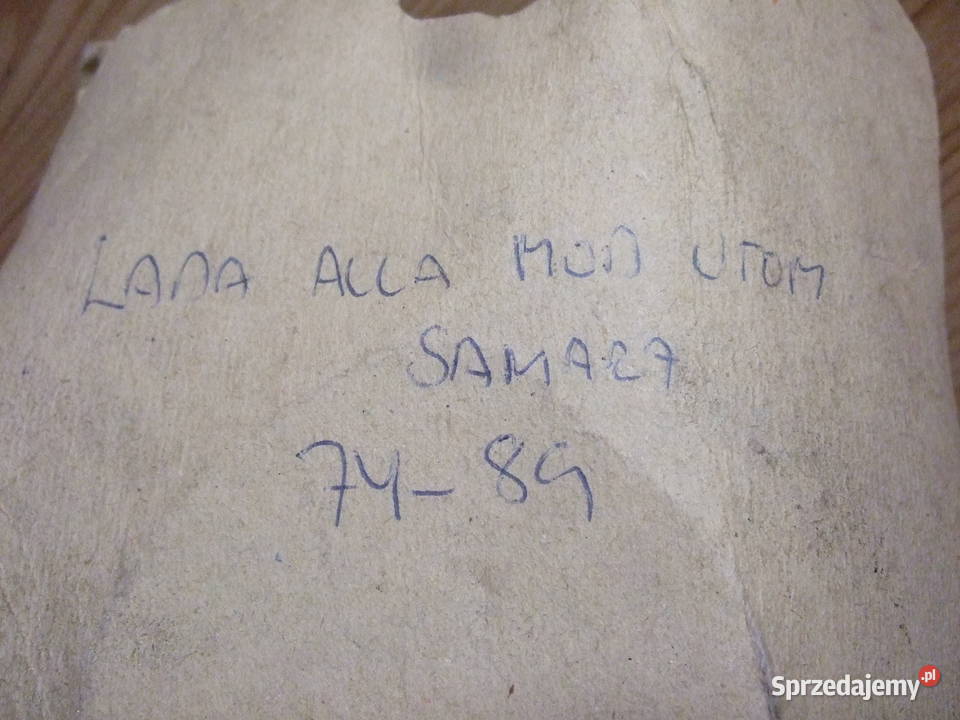 LADA ALLA MOD UTOM
SAMARA
74-89
Sprzedajemy.pl